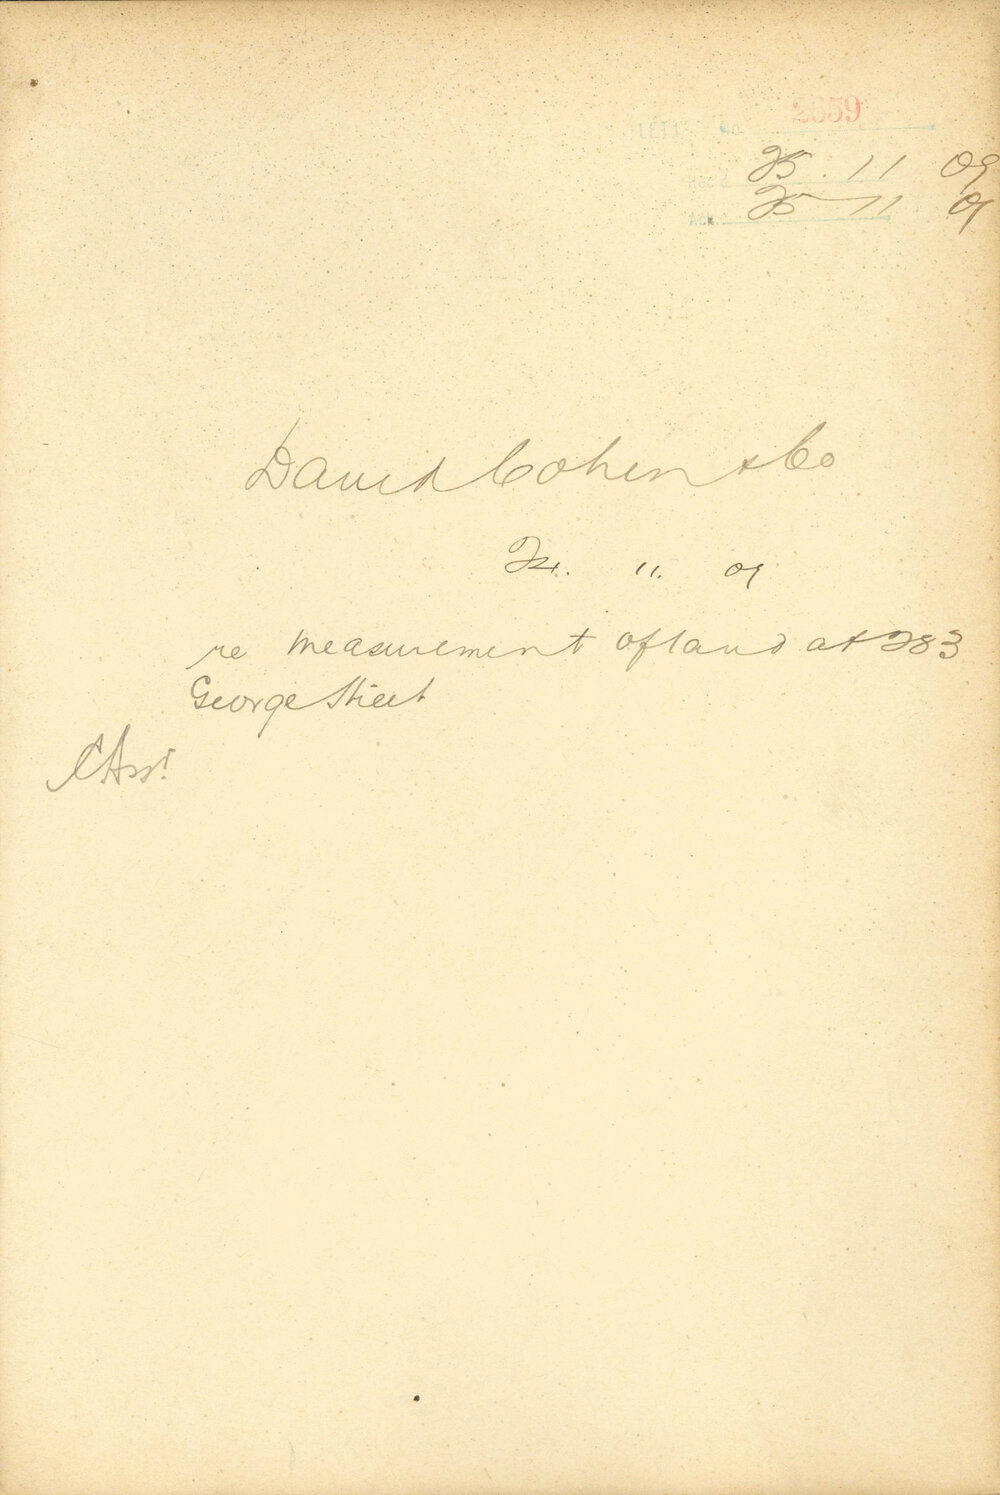 LETTER No. 2659
25. 11 09
25 11 09
David Cohen & Co
24. 11. 09
re measurement of land at 283
George Street